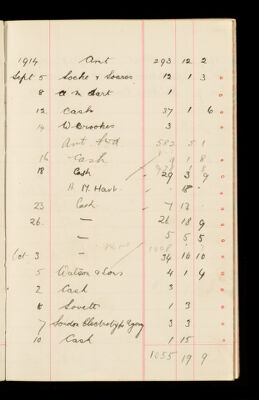 1914 Amt 293 12 2
Sept 5 Locke & Soares 12 1 3
8 A M Hart 1
12 Cash 37 1 6
14 W Brookes 3
Amt fwd 582 5 1
16 Cash 9 1 8
18 Cash 29 3 9
A. M. Hart 18
23 Cash 7 13
26 — 26 18 9
— 5 5 5
Oct 3 — 34 16 10
5 Watson & Sons 4 1 9
2 Cash 3
Lovett 1 3
7 London Electrotype Agency 3 3
10 Cash 1 15
1055 19 9